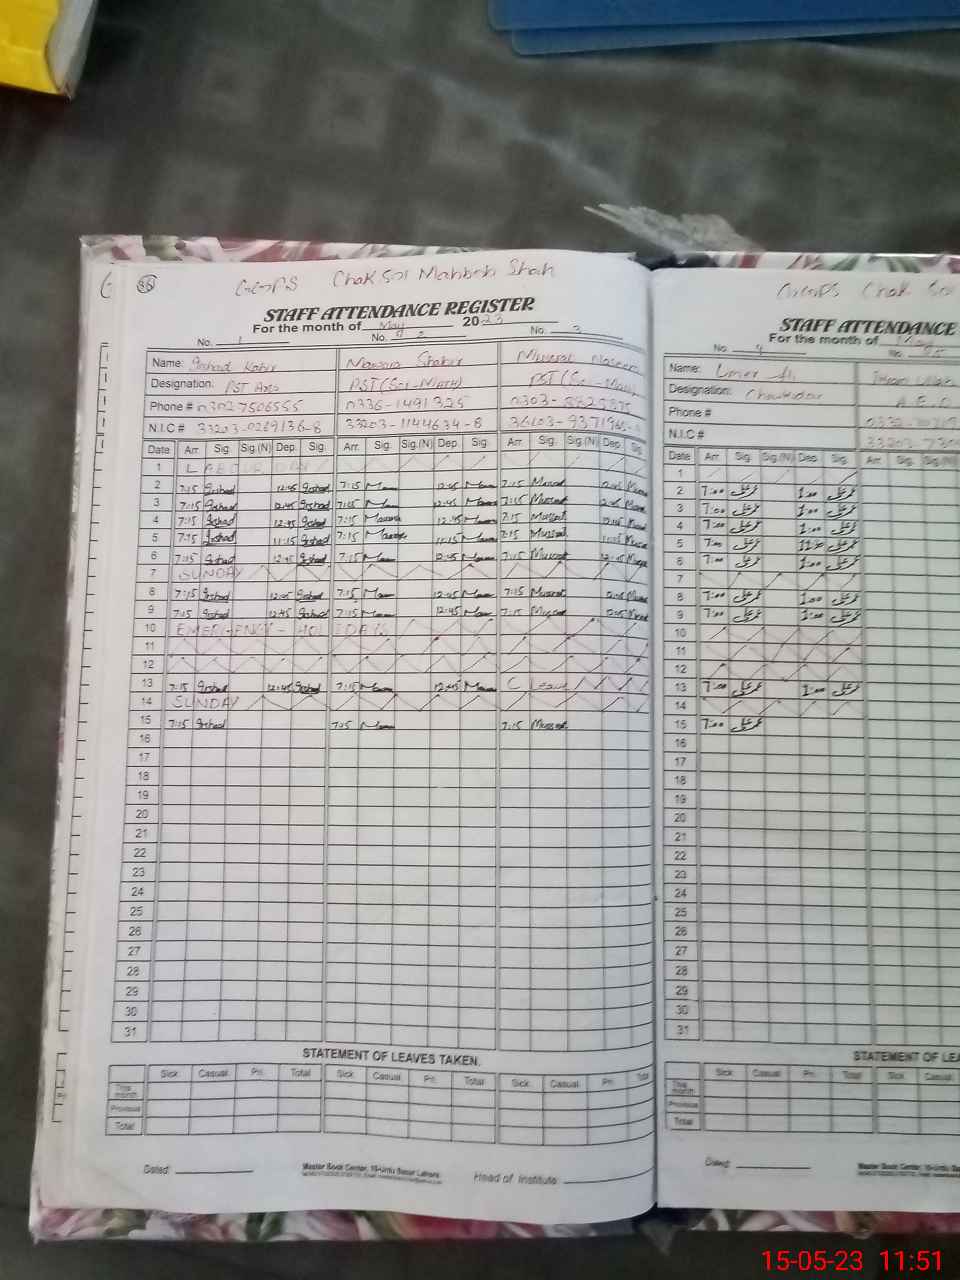 36
GGPS Chak 501 Mahbob Shah
STAFF ATTENDANCE REGISTER
For the month of May 2023
No. 1 No. 2 No. 3
Name: Irshad Kabir Mawara Shakir Musarat Naseem
Designation: PST Arts PST (Sci-Math) PST (Sci-Math)
Phone # 03027506555 0336-1491325 0303-
N.I.C # 33203-0269136-8 33203-1144634-8 36103-
Date Arr. Sig. Sig.(N) Dep. Sig. Arr. Sig. Sig.(N) Dep. Sig. Arr. Sig. Sig.(N) Dep. Sig.
1 LABOUR DAY
2 7:15 Irshad 12:45 Irshad 7:15 12:45 7:15 Musarat 12:45
3 7:15 Irshad 12:45 Irshad 7:15 12:45 7:15 Musarat 12:45
4 7:15 Irshad 12:45 Irshad 7:15 12:45 7:15 Musarat 12:45
5 7:15 Irshad 11:15 Irshad 7:15 11:15 7:15 Musarat 11:15
6 7:15 Irshad 12:45 Irshad 7:15 12:45 7:15 Musarat 12:45
7 SUNDAY
8 7:15 Irshad 12:45 Irshad 7:15 12:45 7:15 Musarat 12:45
9 7:15 Irshad 12:45 Irshad 7:15 12:45 7:15 Musarat 12:45
10 EMERGENCY - HOLIDAYS
11
12
13 7:15 Irshad 12:45 Irshad 7:15 12:45 C Leave
14 SUNDAY
15 7:15 Irshad 7:15 7:15 Musarat
16
17
18
19
20
21
22
23
24
25
26
27
28
29
30
31
STATEMENT OF LEAVES TAKEN.
Sick Casual Pri. Total Sick Casual Pri. Total Sick Casual Pri. Total
This month
Previous
Total
Dated: Master Book Center, 10-Urdu Bazar Lahore. Head of Institute
GGPS Chak 501
STAFF ATTENDANCE
For the month of May
No. 4 No.
Name: Umer Ali
Designation: Chowkidar A.E.O
Phone #
N.I.C #
Date Arr. Sig. Sig.(N) Dep. Sig. Arr. Sig. Sig.(N)
1
2 7:00 عمر علی 1:00 عمر علی
3 7:00 عمر علی 1:00 عمر علی
4 7:00 عمر علی 1:00 عمر علی
5 7:00 عمر علی 11:30 عمر علی
6 7:00 عمر علی 1:00 عمر علی
7
8 7:00 عمر علی 1:00 عمر علی
9 7:00 عمر علی 1:00 عمر علی
10
11
12
13 7:00 عمر علی 1:00 عمر علی
14
15 7:00 عمر علی
16
17
18
19
20
21
22
23
24
25
26
27
28
29
30
31
STATEMENT OF LEA
Sick Casual Pri. Total Sick Casual
This month
Previous
Total
Dated: Master Book Center, 10-Urdu Bazar
15-05-23 11:51